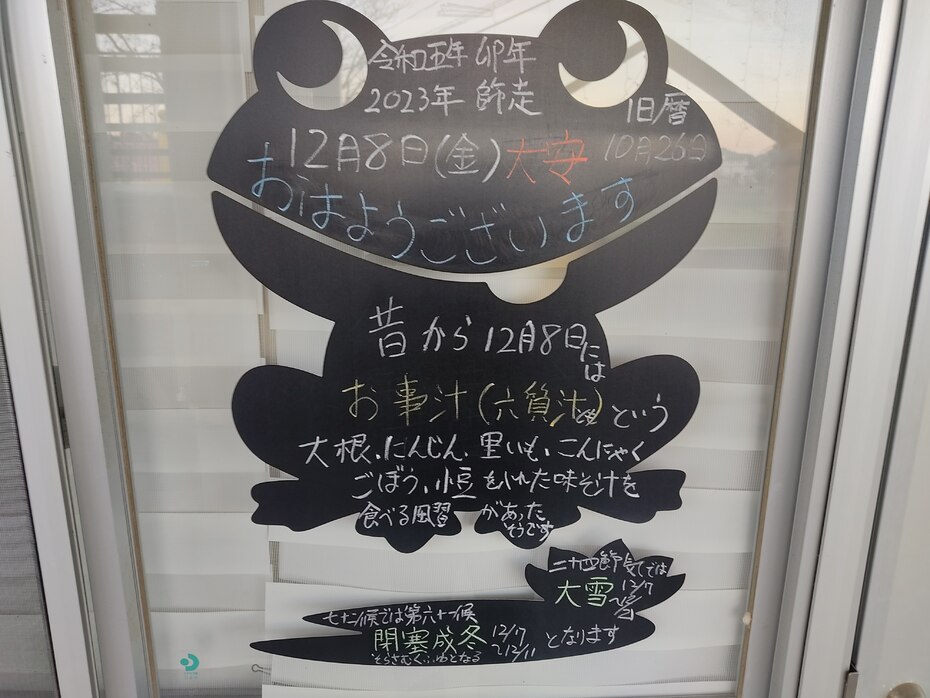 令和五年 卯年
2023年 師走
旧暦
12月8日(金)大安 10月26日
おはようございます
昔から12月8日には
お事汁(六質汁)という
大根、にんじん、里いも、こんにゃく
ごぼう、小豆を入れた味そ汁を
食べる風習があった
そうです
二十四節気では
大雪 12/7
七十二候では第六十一候
閉塞成冬 12/7〜12/11 となります
そらさむくふゆとなる